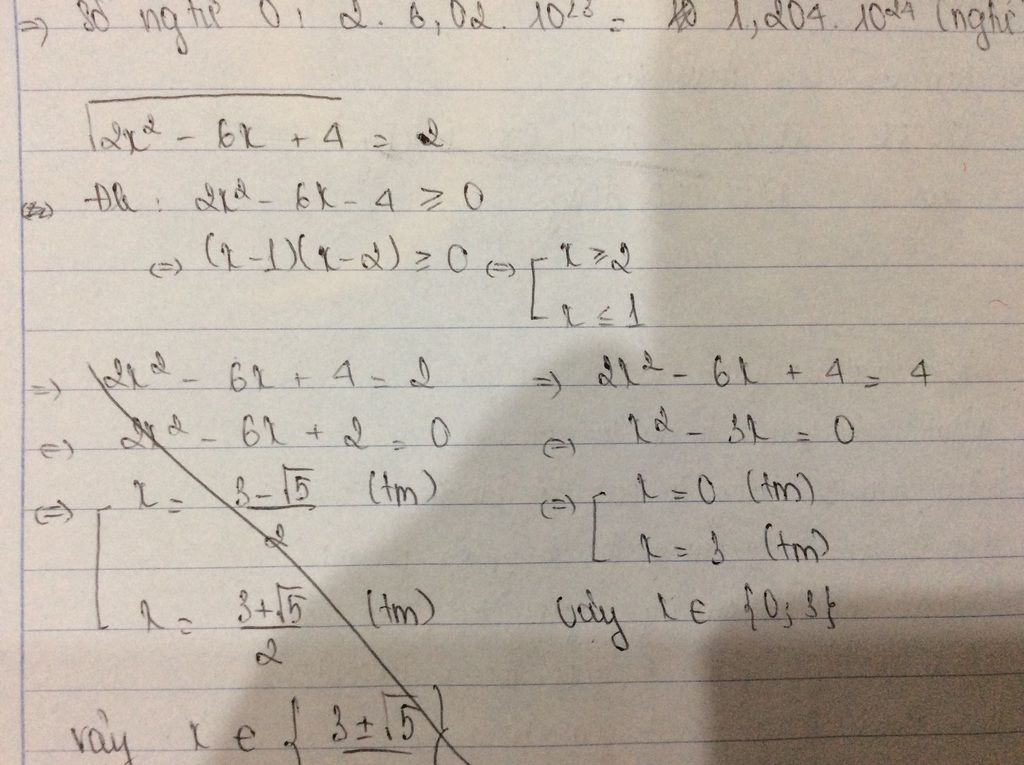 => Số ngtử O: 2. 6,02. 10²³ = 1,204. 10²⁴ (ngtử
√2x² - 6x + 4 = 2
Đk: 2x² - 6x - 4 ≥ 0
<=> (x-1)(x-2) ≥ 0 <=> [ x ≥ 2
x ≤ 1
=> 2x² - 6x + 4 = 2
<=> 2x² - 6x + 2 = 0
<=> [ x = (3-√5)/2 (tm)
x = (3+√5)/2 (tm)
vậy x ∈ { 3±√5 }
=> 2x² - 6x + 4 = 4
<=> x² - 3x = 0
<=> [ x = 0 (tm)
x = 3 (tm)
vậy x ∈ {0; 3}